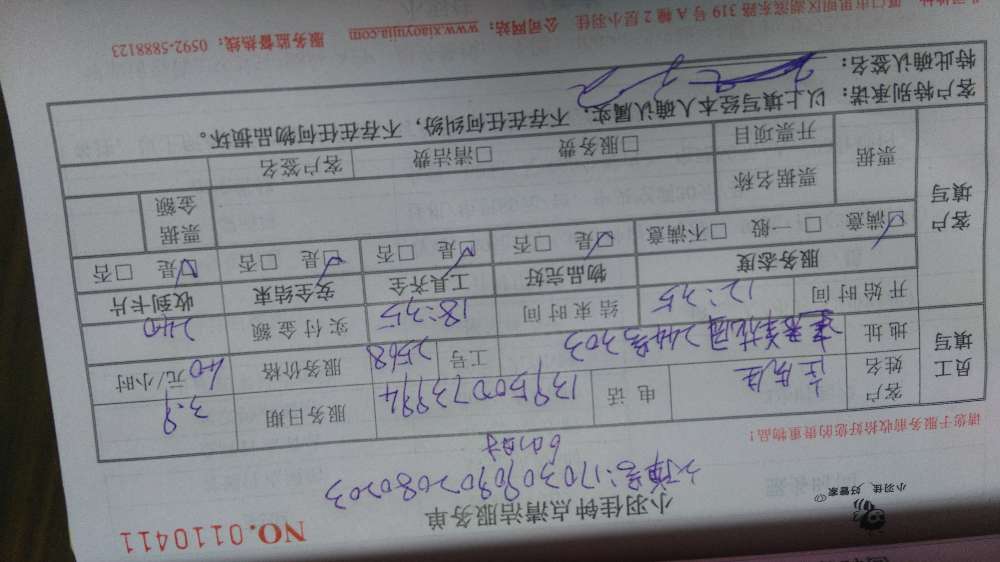 小羽佳 好管家
小羽佳钟点清洁服务单
NO.0110411
单号:1703090902080203
6小时
请您于服务前收拾好您的贵重物品!
员工填写
客户姓名 先生 电话 13950073994 服务日期 3.9
地址 244号303 工号 2568 服务价格 40元/小时
开始时间 12:35 结束时间 18:35 实付金额 240
客户填写
服务态度 物品完好 工具齐全 安全结束 收到卡片
☑满意 □一般 □不满意 ☑是 □否 ☑是 □否 ☑是 □否 ☑是 □否
票据 票据名称 票据金额
开票项目 □服务费 □清洁费 客户签名
客户特别承诺: 以上填写经本人确认属实,不存在任何纠纷,不存在任何物品损坏。
特此确认签名:
厦门市思明区湖滨东路 319 号 A 幢 2 层小羽佳 公司网站:www.xiaoyujia.com 服务监督热线:0592-5888123